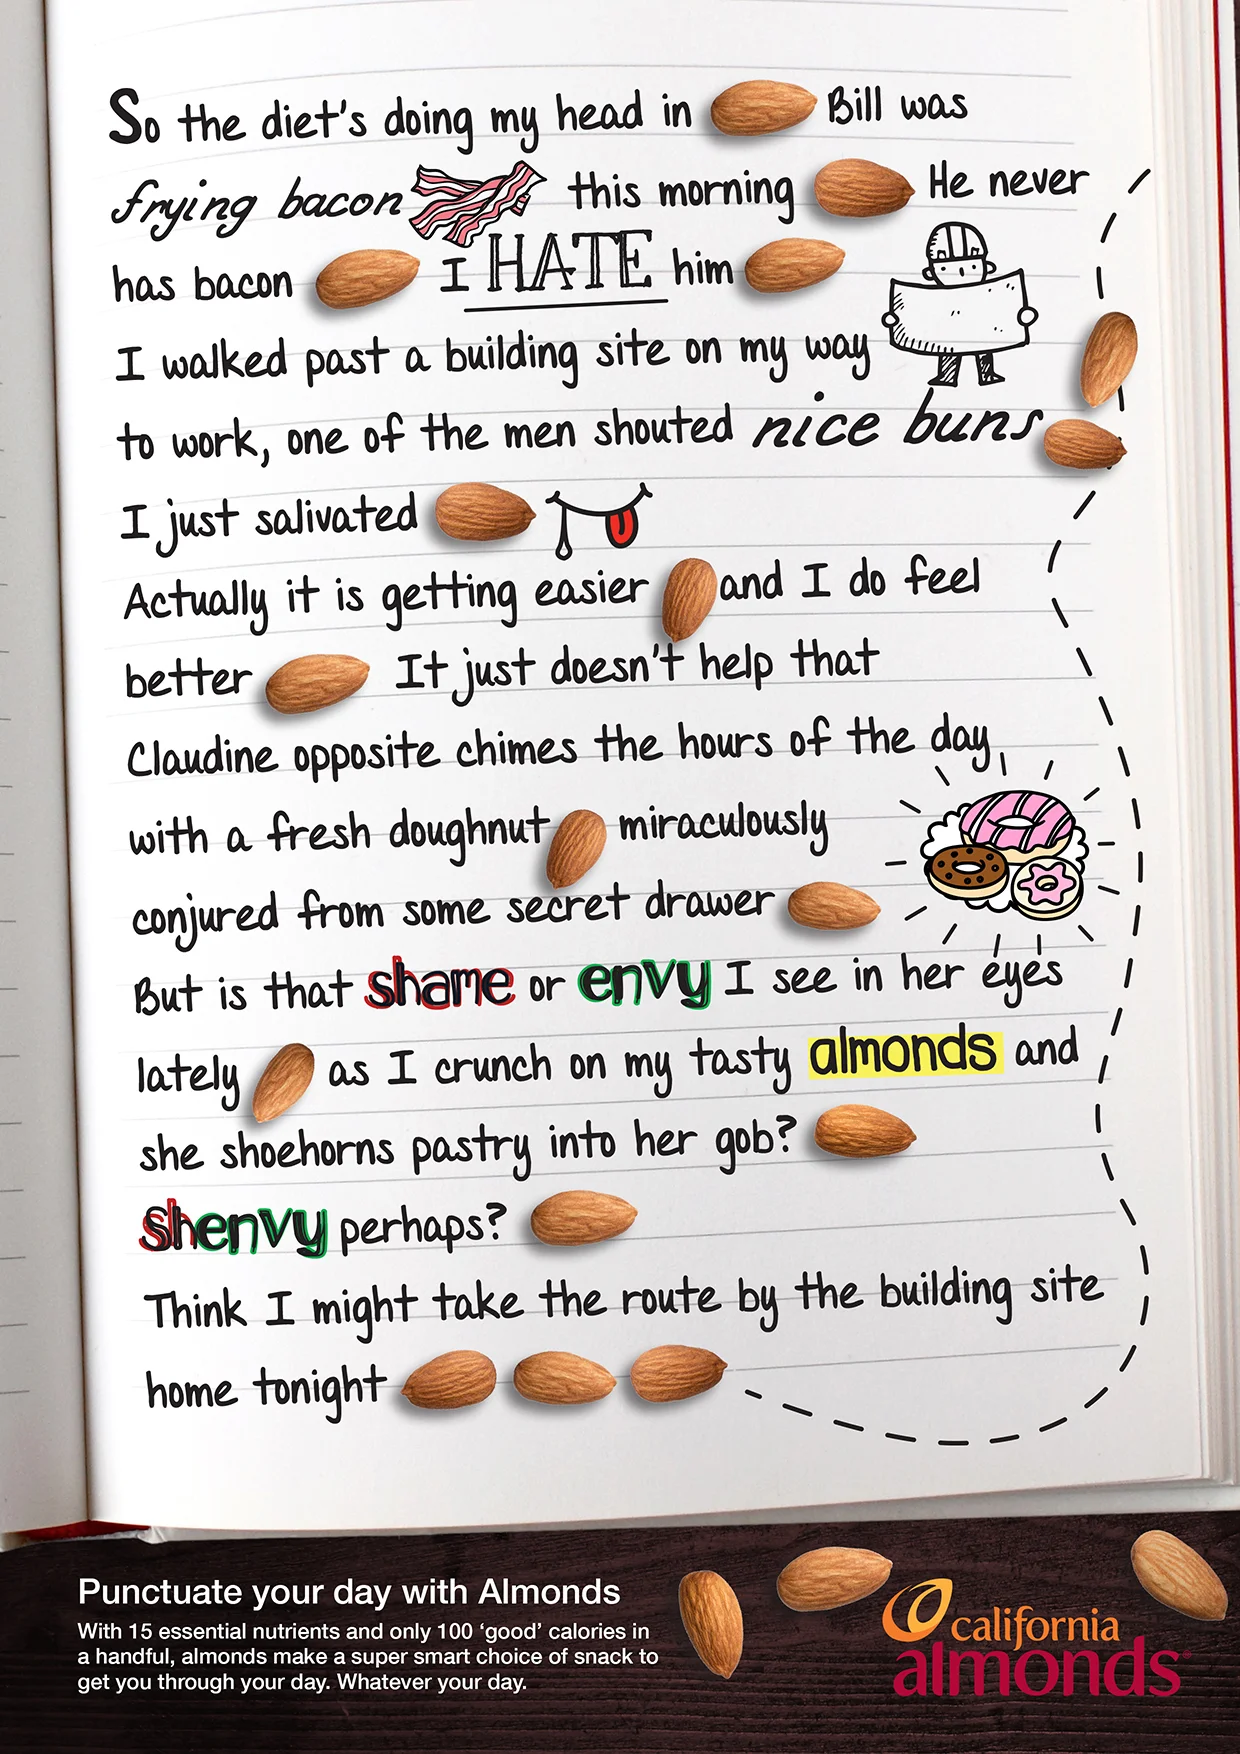 So the diet's doing my head in Bill was
frying bacon this morning He never
has bacon I HATE him
I walked past a building site on my way
to work, one of the men shouted nice buns
I just salivated
Actually it is getting easier and I do feel
better It just doesn't help that
Claudine opposite chimes the hours of the day
with a fresh doughnut miraculously
conjured from some secret drawer
But is that shame or envy I see in her eyes
lately as I crunch on my tasty almonds and
she shoehorns pastry into her gob?
shenvy perhaps?
Think I might take the route by the building site
home tonight
Punctuate your day with Almonds
With 15 essential nutrients and only 100 ‘good’ calories in
a handful, almonds make a super smart choice of snack to
get you through your day. Whatever your day.
california
almonds®